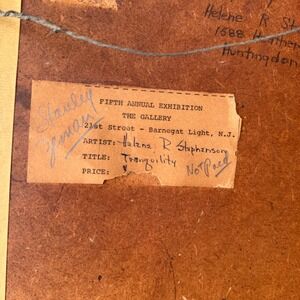 Helene R St
1688 Hunt
Huntingdon
Stanley
FIFTH ANNUAL EXHIBITION
THE GALLERY
21st Street - Barnegat Light, N.J.
ARTIST: Helene R Stephenson
TITLE: Tranquility
PRICE:
Not Paid